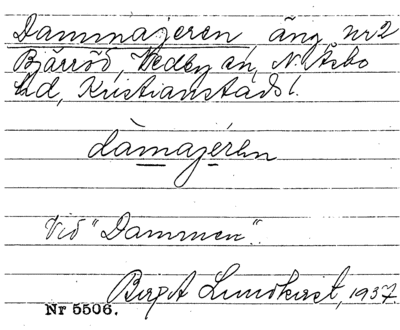 Dammajeren äng nr 2
Bjärröd, Vedby sn, N. Åsbo
hd, Kristianstads l.
dàmajéren
Vid "Dammen".
Birgit Lundkvist, 1937.
Nr 5506.